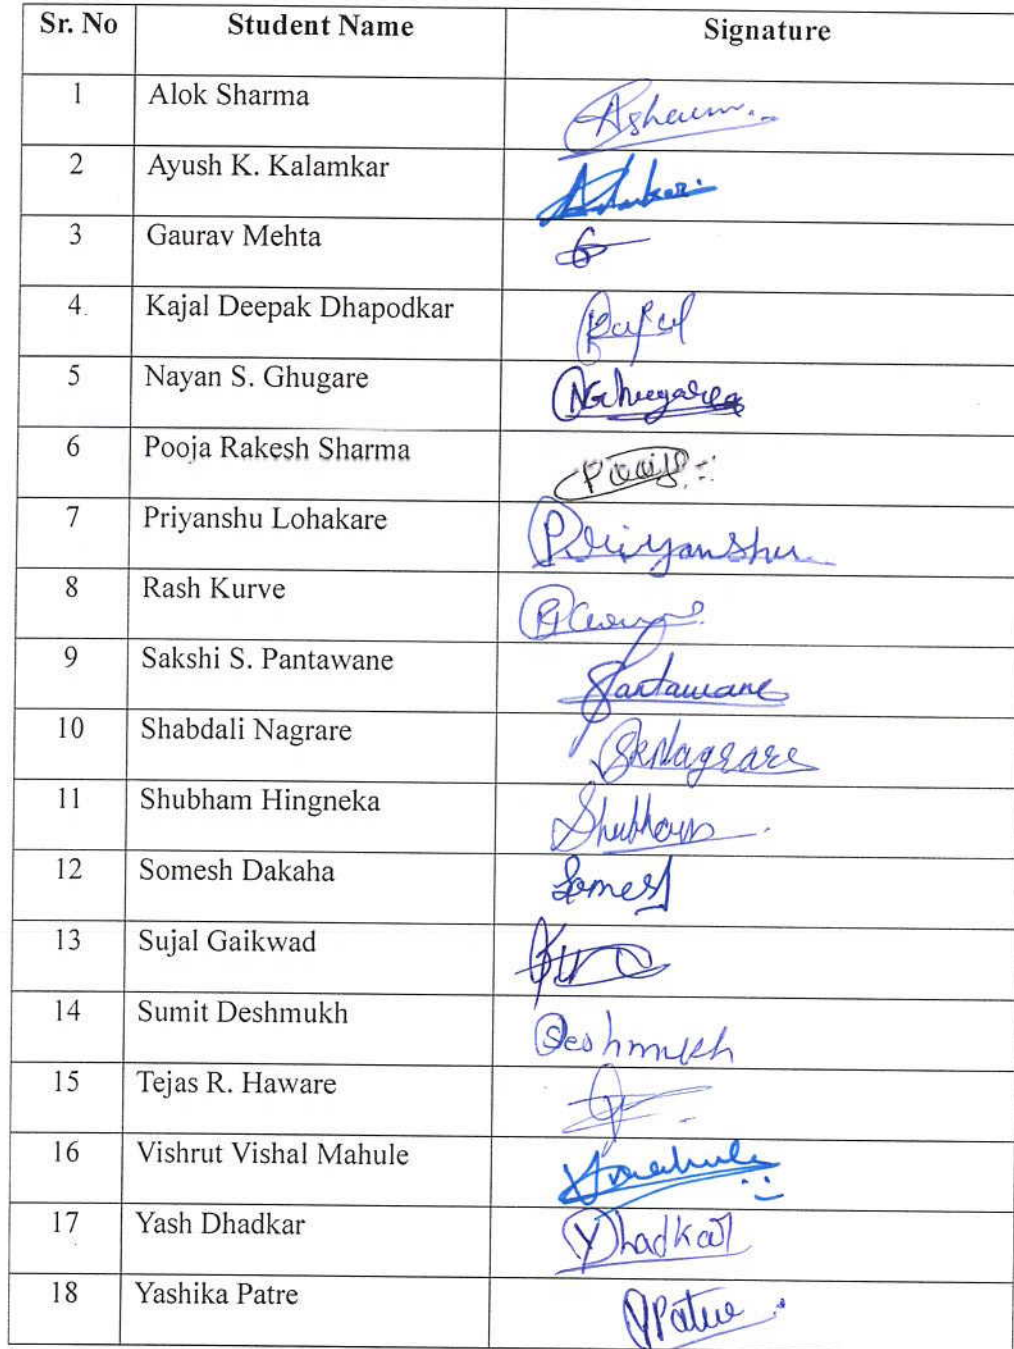 Sr. No Student Name Signature
1 Alok Sharma
2 Ayush K. Kalamkar
3 Gaurav Mehta
4. Kajal Deepak Dhapodkar
5 Nayan S. Ghugare NGhugare
6 Pooja Rakesh Sharma Pooja
7 Priyanshu Lohakare Priyanshu
8 Rash Kurve
9 Sakshi S. Pantawane SPantawane
10 Shabdali Nagrare SRNagrare
11 Shubham Hingneka Shubham
12 Somesh Dakaha Somesh
13 Sujal Gaikwad
14 Sumit Deshmukh SDeshmukh
15 Tejas R. Haware
16 Vishrut Vishal Mahule VMahule
17 Yash Dhadkar YDhadkar
18 Yashika Patre YPatre